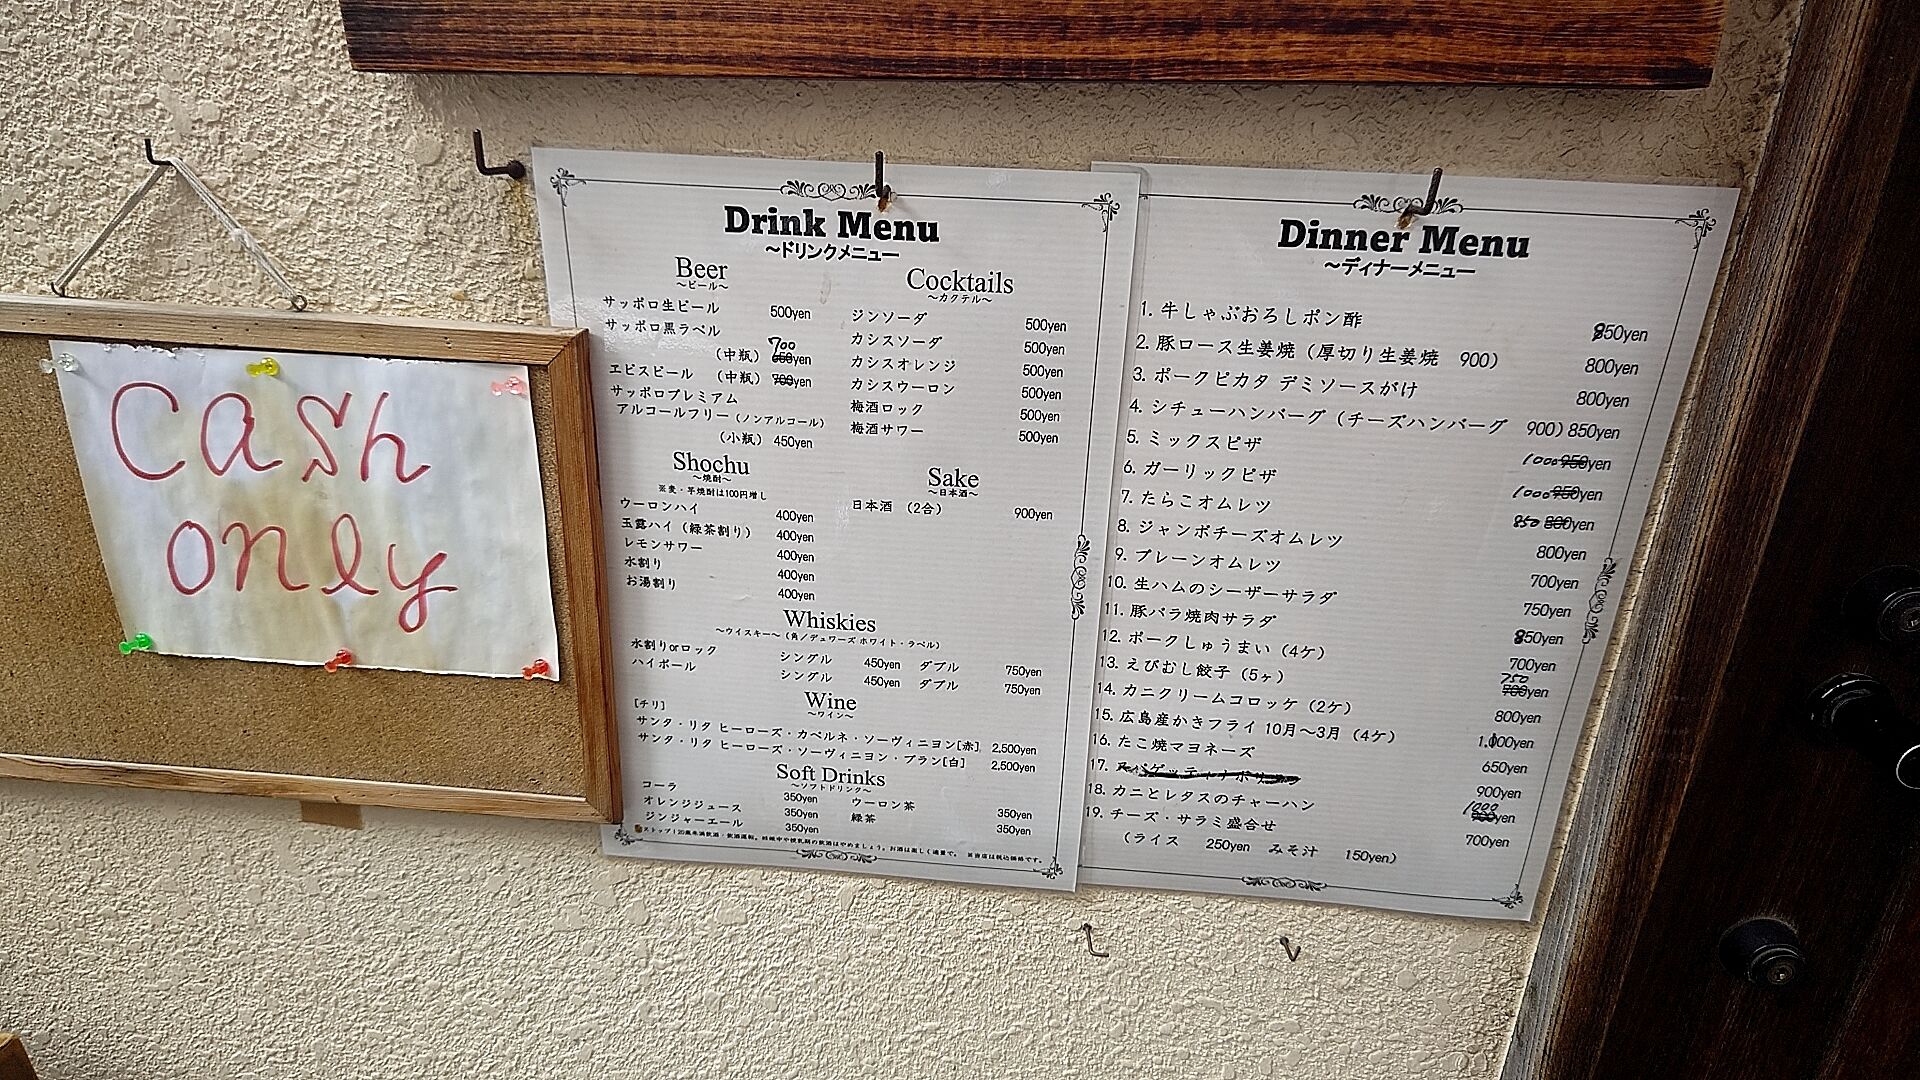 cash
only
Drink Menu
～ドリンクメニュー～
Beer
～ビール～
サッポロ生ビール 500yen
サッポロ黒ラベル
（中瓶） 700 650yen
エビスビール （中瓶） 700yen
サッポロプレミアム
アルコールフリー（ノンアルコール）
（小瓶） 450yen
Shochu
～焼酎～
※麦・芋焼酎は100円増し
ウーロンハイ 400yen
玉露ハイ（緑茶割り） 400yen
レモンサワー 400yen
水割り 400yen
お湯割り 400yen
Cocktails
～カクテル～
ジンソーダ 500yen
カシスソーダ 500yen
カシスオレンジ 500yen
カシスウーロン 500yen
梅酒ロック 500yen
梅酒サワー 500yen
Sake
～日本酒～
日本酒 （2合） 900yen
Whiskies
～ウイスキー～（角／デュワーズ ホワイト・ラベル）
水割りorロック シングル 450yen ダブル 750yen
ハイボール シングル 450yen ダブル 750yen
Wine
～ワイン～
[チリ]
サンタ・リタ ヒーローズ・カベルネ・ソーヴィニヨン[赤] 2,500yen
サンタ・リタ ヒーローズ・ソーヴィニヨン・ブラン[白] 2,500yen
Soft Drinks
～ソフトドリンク～
コーラ 350yen ウーロン茶 350yen
オレンジジュース 350yen 緑茶 350yen
ジンジャーエール 350yen
ストップ！20歳未満飲酒・飲酒運転。妊娠中や授乳期の飲酒はやめましょう。お酒は楽しく適量で。 ※当店は税込価格です。
Dinner Menu
～ディナーメニュー～
1. 牛しゃぶおろしポン酢 850yen
2. 豚ロース生姜焼（厚切り生姜焼 900） 800yen
3. ポークピカタ デミソースがけ 800yen
4. シチューハンバーグ（チーズハンバーグ 900）850yen
5. ミックスピザ 1000 950yen
6. ガーリックピザ 1000 950yen
7. たらこオムレツ 850 800yen
8. ジャンボチーズオムレツ 800yen
9. プレーンオムレツ 700yen
10. 生ハムのシーザーサラダ 750yen
11. 豚バラ焼肉サラダ 850yen
12. ポークしゅうまい（4ケ） 700yen
13. えびむし餃子（5ヶ） 750 700yen
14. カニクリームコロッケ（2ケ） 800yen
15. 広島産かきフライ 10月～3月（4ケ） 1,000yen
16. たこ焼マヨネーズ 650yen
17. スパゲッティナポリタン 900yen
18. カニとレタスのチャーハン 1000 yen
19. チーズ・サラミ盛合せ 700yen
（ライス 250yen みそ汁 150yen）